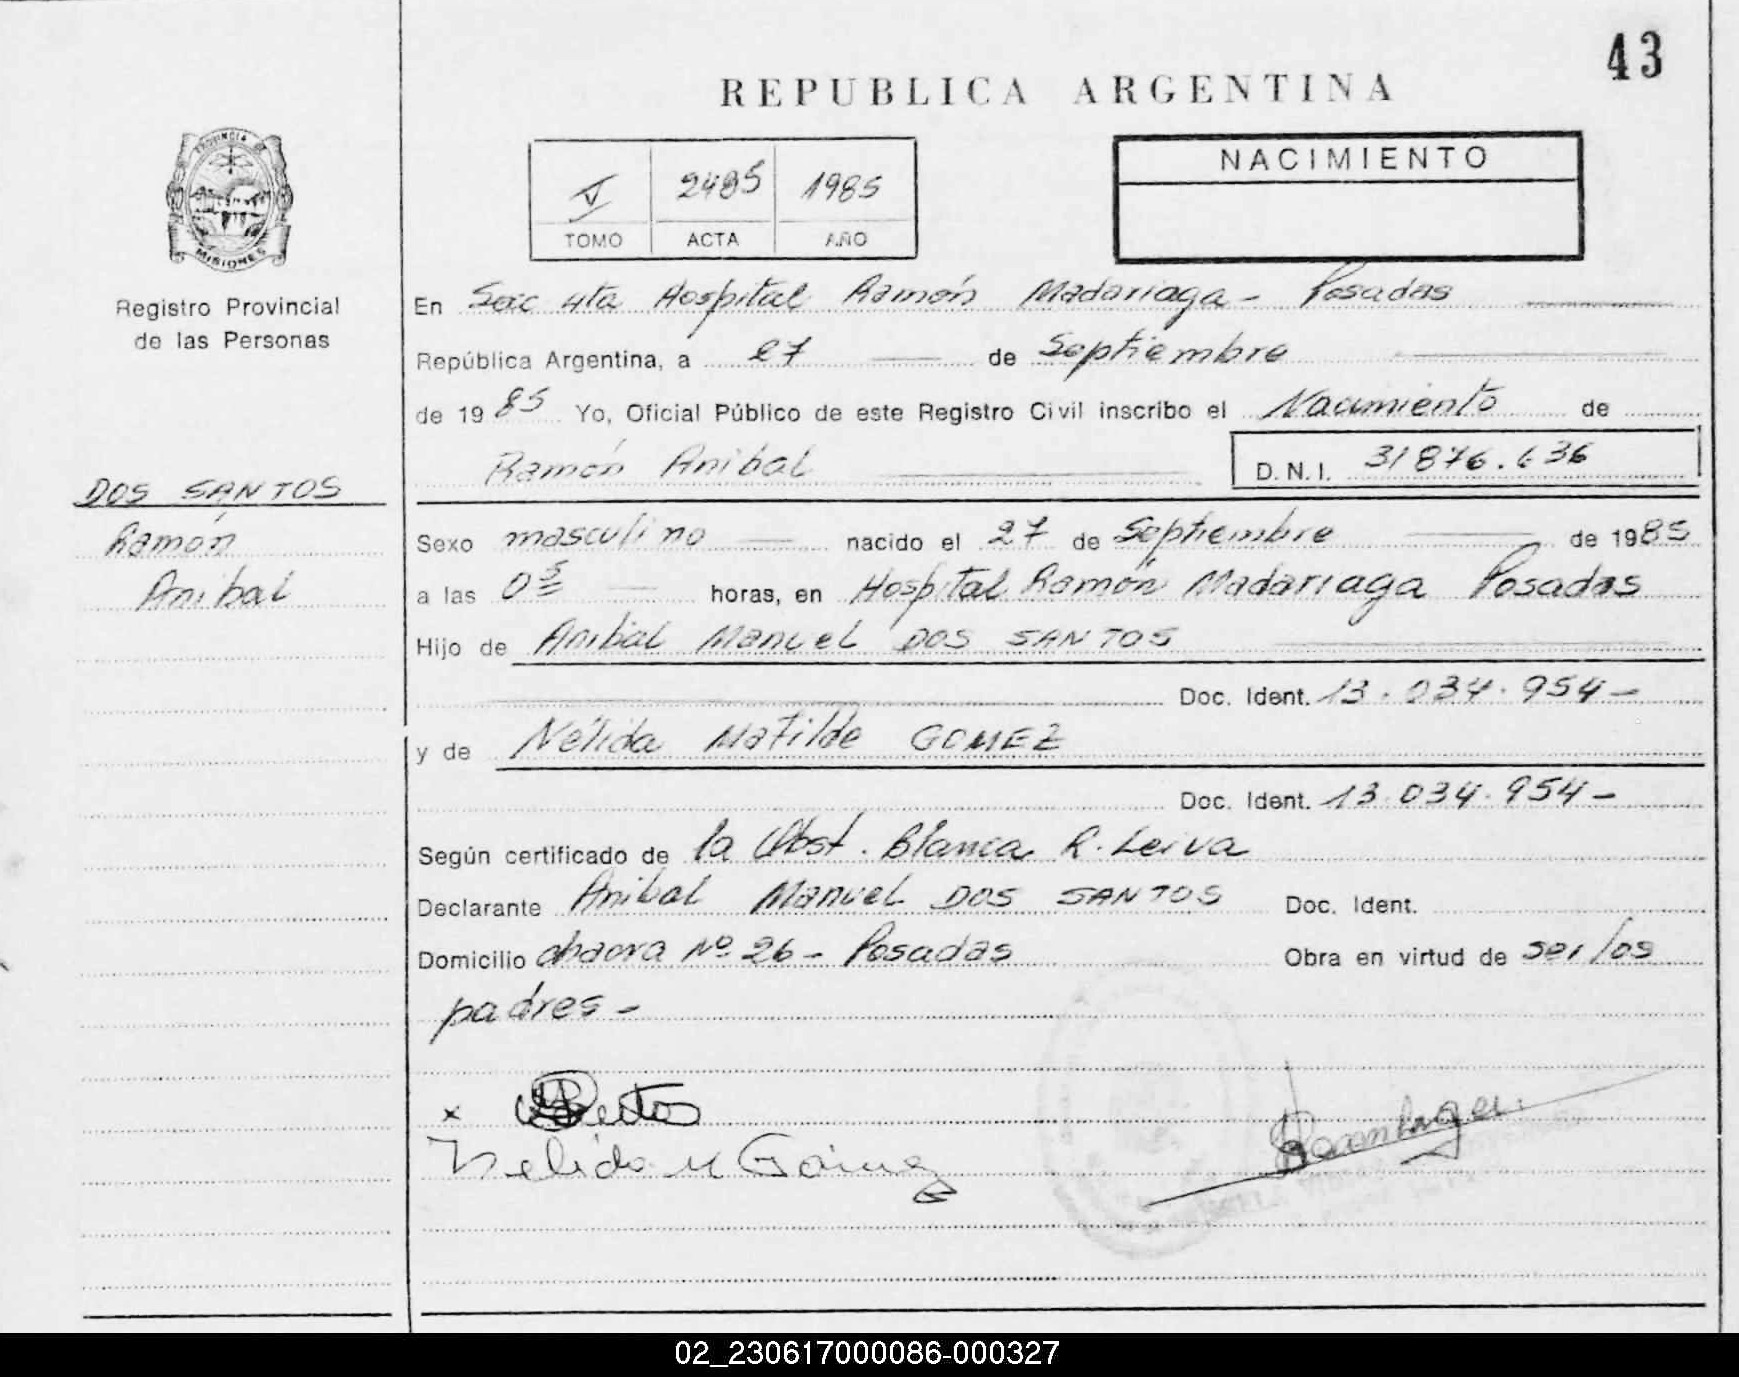 43
REPUBLICA ARGENTINA
PROVINCIA DE
MISIONES
Registro Provincial
de las Personas
V 2485 1985
TOMO ACTA AÑO
NACIMIENTO
En Secc 4ta Hospital Ramón Madariaga - Posadas
República Argentina, a 27 de Septiembre
de 1985 Yo, Oficial Público de este Registro Civil inscribo el Nacimiento de
Ramón Anibal D.N.I. 31876.636
DOS SANTOS
Ramón
Anibal
Sexo masculino nacido el 27 de Septiembre de 1985
a las 0 5 horas, en Hospital Ramón Madariaga Posadas
Hijo de Anibal Manuel DOS SANTOS
Doc. Ident. 13.034.954-
y de Nélida Matilde GOMEZ
Doc. Ident. 13.034.954-
Según certificado de la Obst. Blanca R. Leiva
Declarante Anibal Manuel DOS SANTOS Doc. Ident.
Domicilio chacra Nº 26 - Posadas Obra en virtud de ser los
padres -
x
Nelida M Gomez
02_230617000086-000327